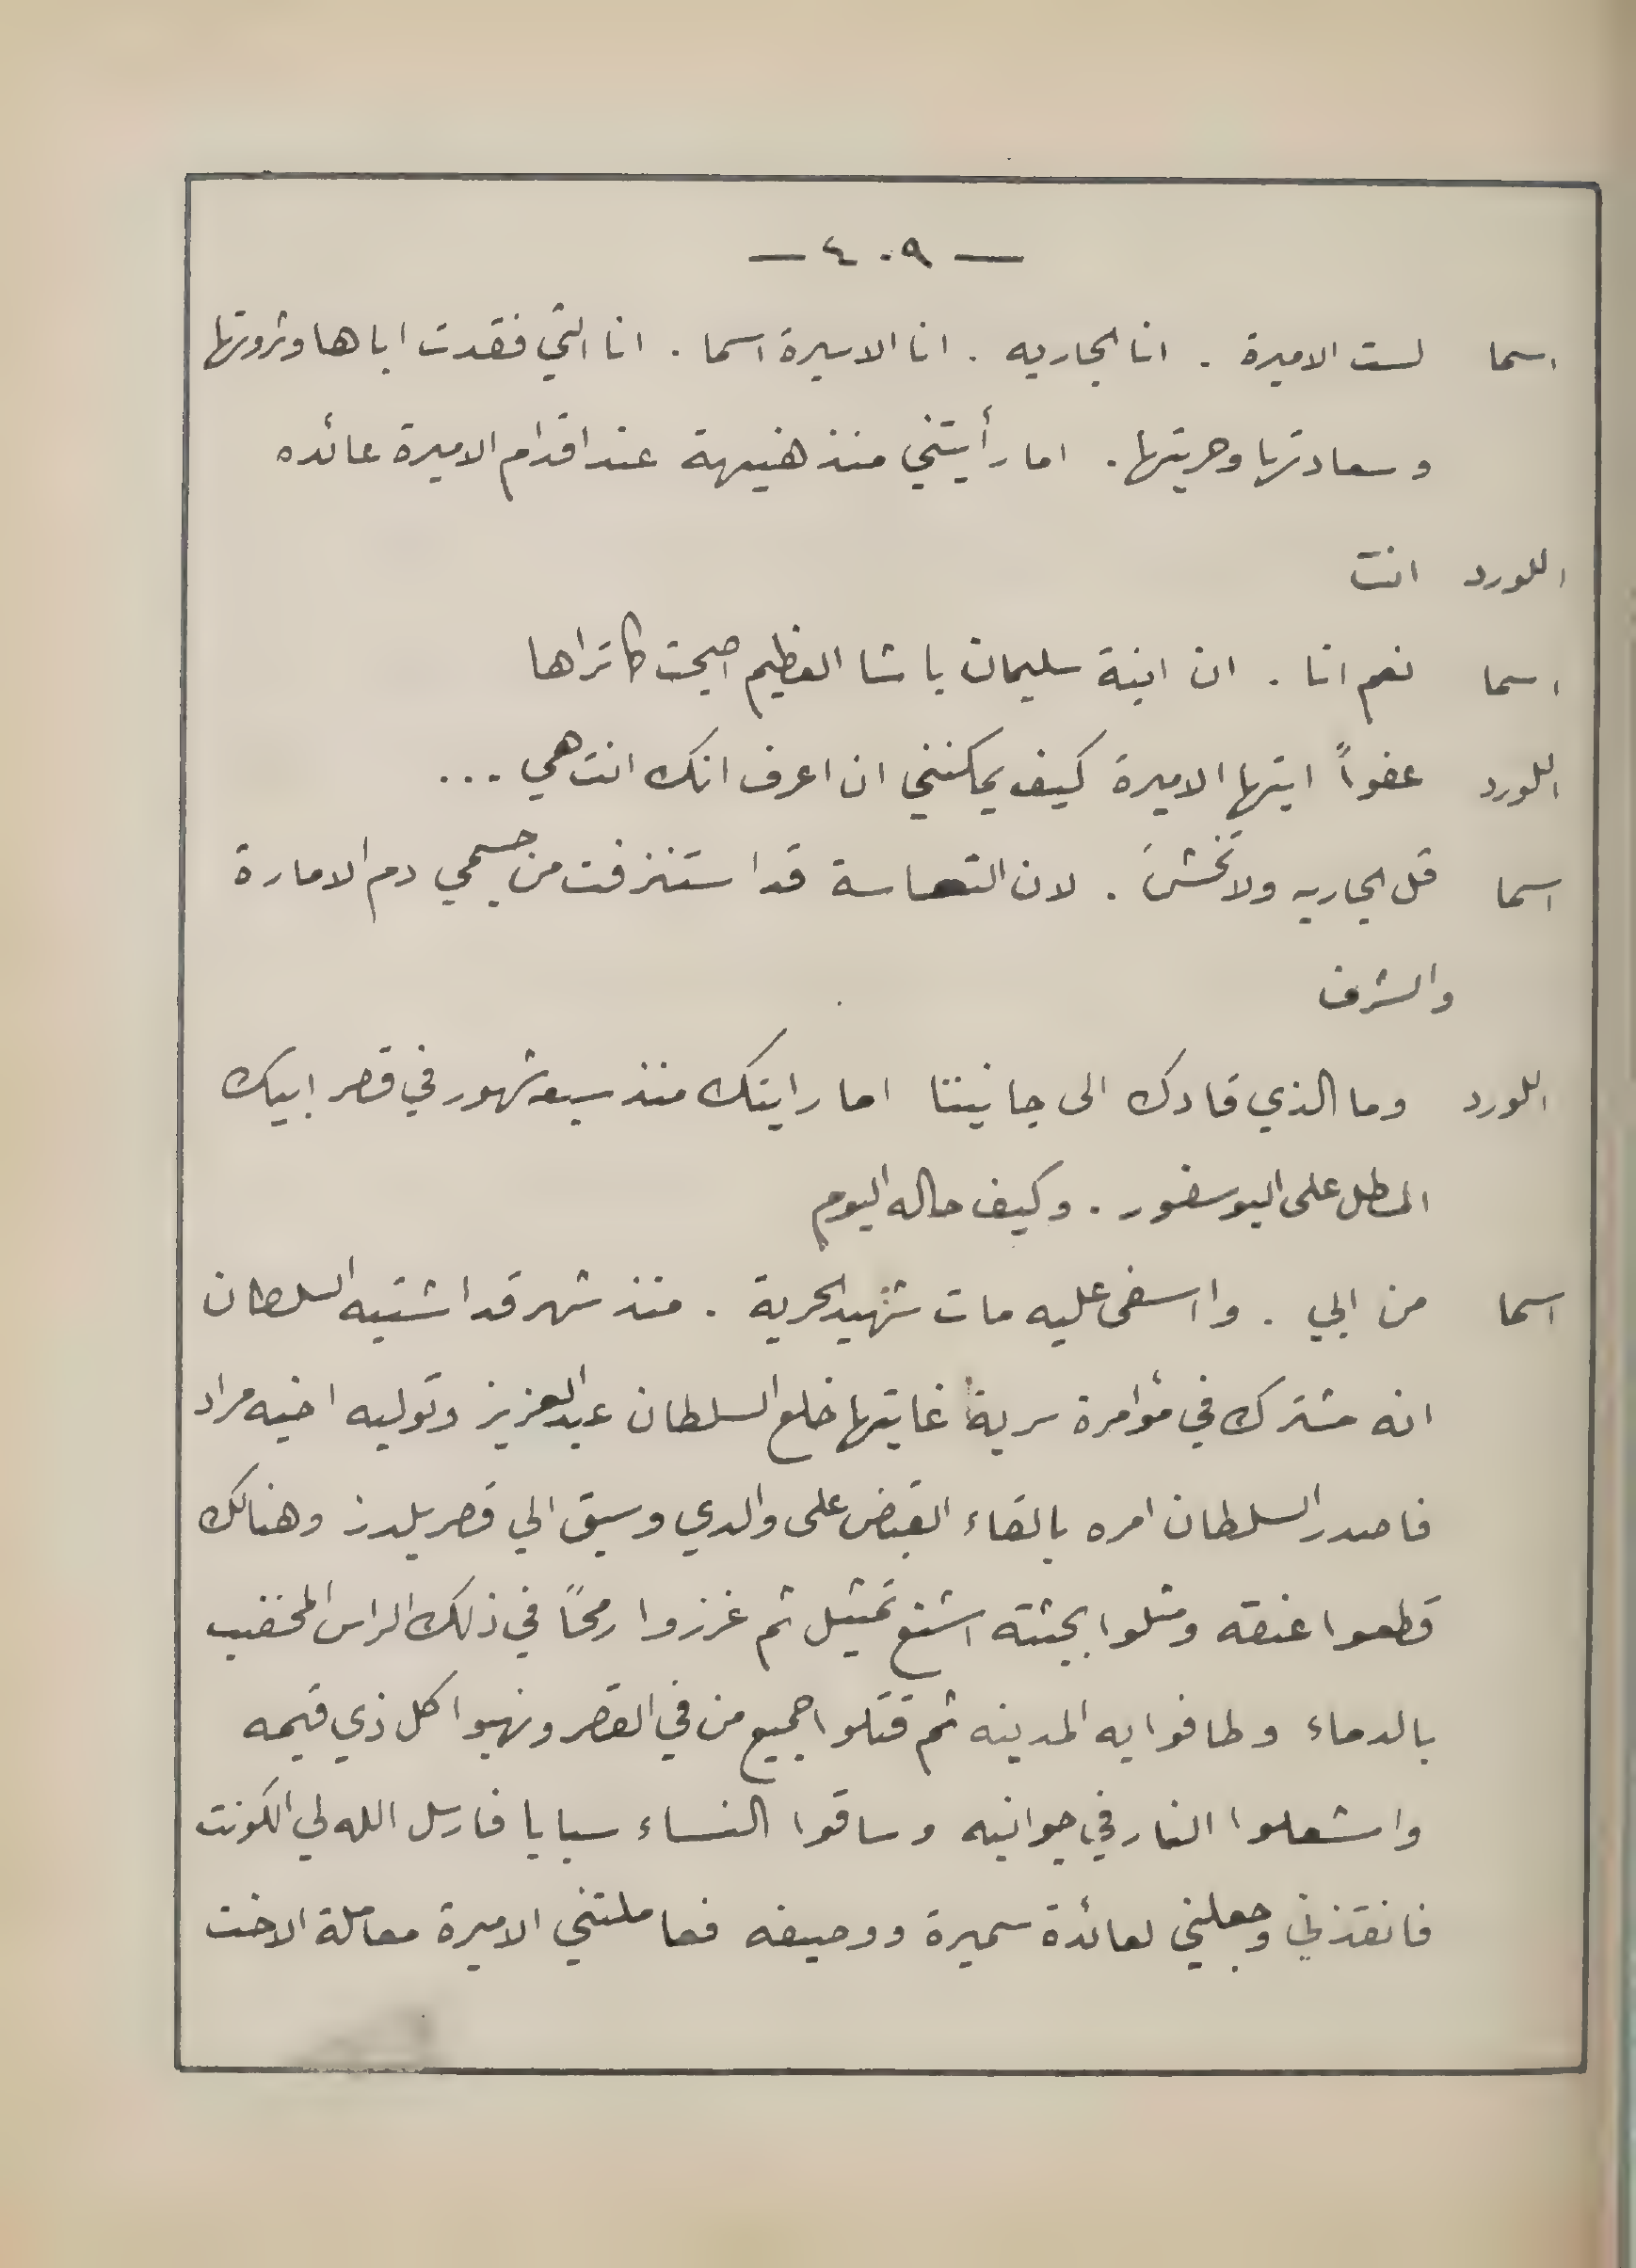 — ٤٠٩ —
اسما لست الاميرة . انا الجاريه . انا الاسيرة اسما . انا التي فقدت اباها وثروتها
وسعادتها وحريتها . اما رأيتني منذ هنيهة عند اقدام الاميرة عائده
اللورد انت
اسما نعم انا . ان ابنة سليمان باشا العظيم اصبحت كما تراها
اللورد عفواً ايتها الاميرة كيف يمكنني ان اعرف انك انت هي ...
اسما قل الجاريه ولا تخشَ . لان التعاسة قد استنزفت من جسمي دم الامارة
والشرف
اللورد وما الذي قادك الى جانيننا اما رايتك منذ سبعة شهور في قصر ابيك
المطل على البوسفور . وكيف حاله اليوم
اسما من ابي . وا اسفي عليه مات شهيد الحرية . منذ شهر قد اشتبه السلطان
انه مشترك في مؤامرة سرية غايتها خلع السلطان عبد العزيز وتوليه اخيه مراد
فاصدر السلطان امره بالقاء القبض على والدي وسيق الي قصر يلدز وهنالك
قطعوا عنقه ومثلوا بجثته اشنع تمثيل ثم غرزوا رمحاً في ذلك الراس المخضب
بالدماء وطافوا به المدينه ثم قتلوا جميع من في القصر ونهبوا كل ذي قيمه
واشعلوا النار في جوانبه وساقوا النساء سبايا فارسل الله لي الكونت
فانقذني وجعلني لعائدة سميرة ووصيفه فعاملتني الاميرة معاملة الاخت